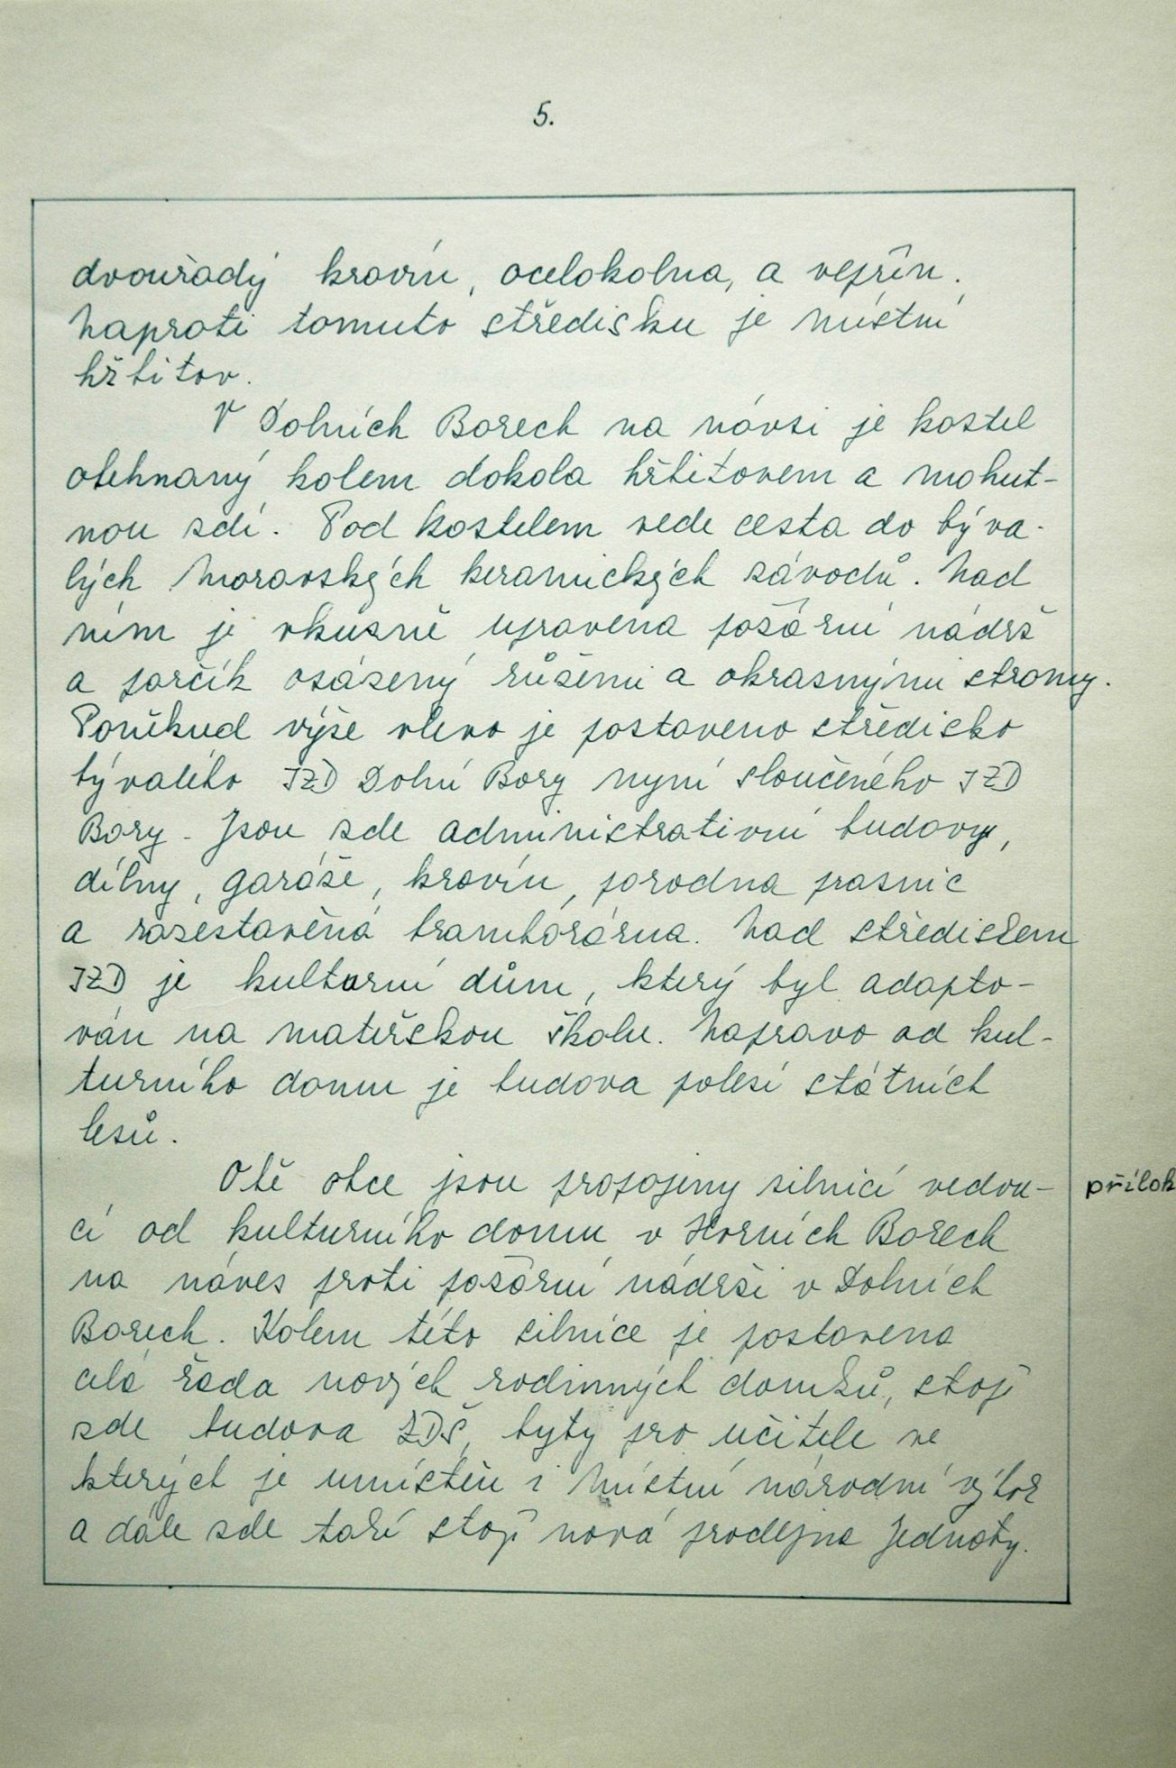 5.
dvouřadý kravín, ocelokolna, a vepřín.
Naproti tomuto středisku je místní
hřbitov.
V Dolních Borech na návsi je kostel
obehnaný kolem dokola hřbitovem a mohut-
nou zdí. Pod kostelem vede cesta do býva-
lých Moravských keramických závodů. Nad
ním je vkusně upravena požární nádrž
a parčík osázený růžemi a okrasnými stromy.
Poněkud výše vlevo je postaveno středisko
bývalého JZD Dolní Bory nyní sloučeného JZD
Bory. Jsou zde administrativní budovy,
dílny, garáže, kravín, porodna prasnic
a rozestavěná bramborárna. Nad střediskem
JZD je kulturní dům, který byl adapto-
ván na mateřskou školu. Napravo od kul-
turního domu je budova polesí státních
lesů.
Obě obce jsou propojeny silnicí vedou-
cí od kulturního domu v Horních Borech
na náves proti požární nádrži v Dolních
Borech. Kolem této silnice je postavena
celá řada nových rodinných domků, stojí
zde budova ZDŠ, byty pro učitele ve
kterých je umístěn i Místní národní výbor
a dále zde také stojí nová prodejna Jednoty.
příloh